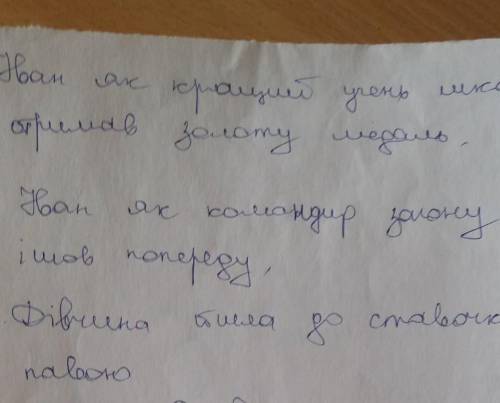 Іван як кращий учень шко
отримав золоту медаль.
Іван як командир загону
ішов попереду.
Дівчина йшла до ставочк
павою